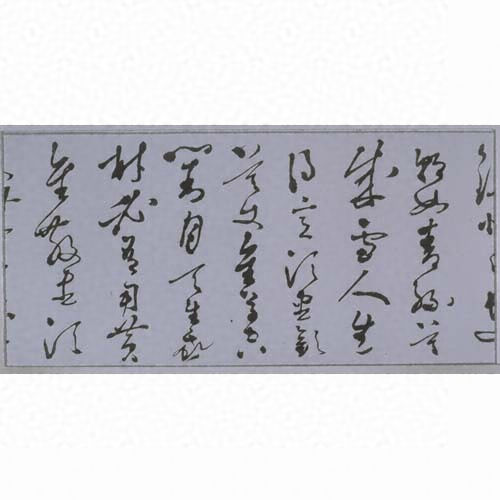 朝如青絲暮
成雪人生
得意須盡歡
莫使金樽空
對月天生我
材必有用黃
金散盡